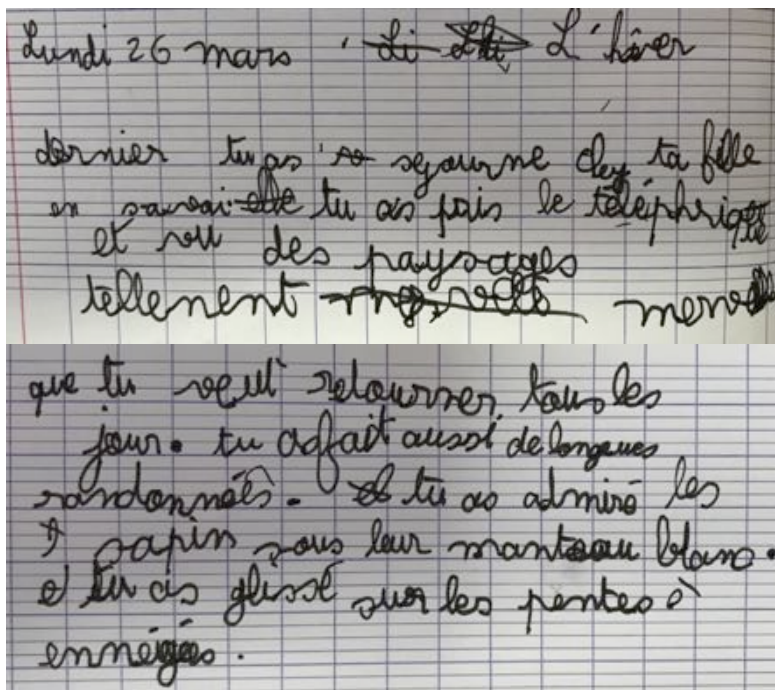 Lundi 26 mars L'hiver
dernier tu as sejourné chez ta fille
en savoai tu as pris le téléphrique
et vu des paysages
tellement merveill
que tu veut retourner tous les
jour. tu as fait aussi de longues
randonnées. et tu as admiré les
sapin sous leur manteau blanc.
et tu as glissé sur les pentes
enneigés.